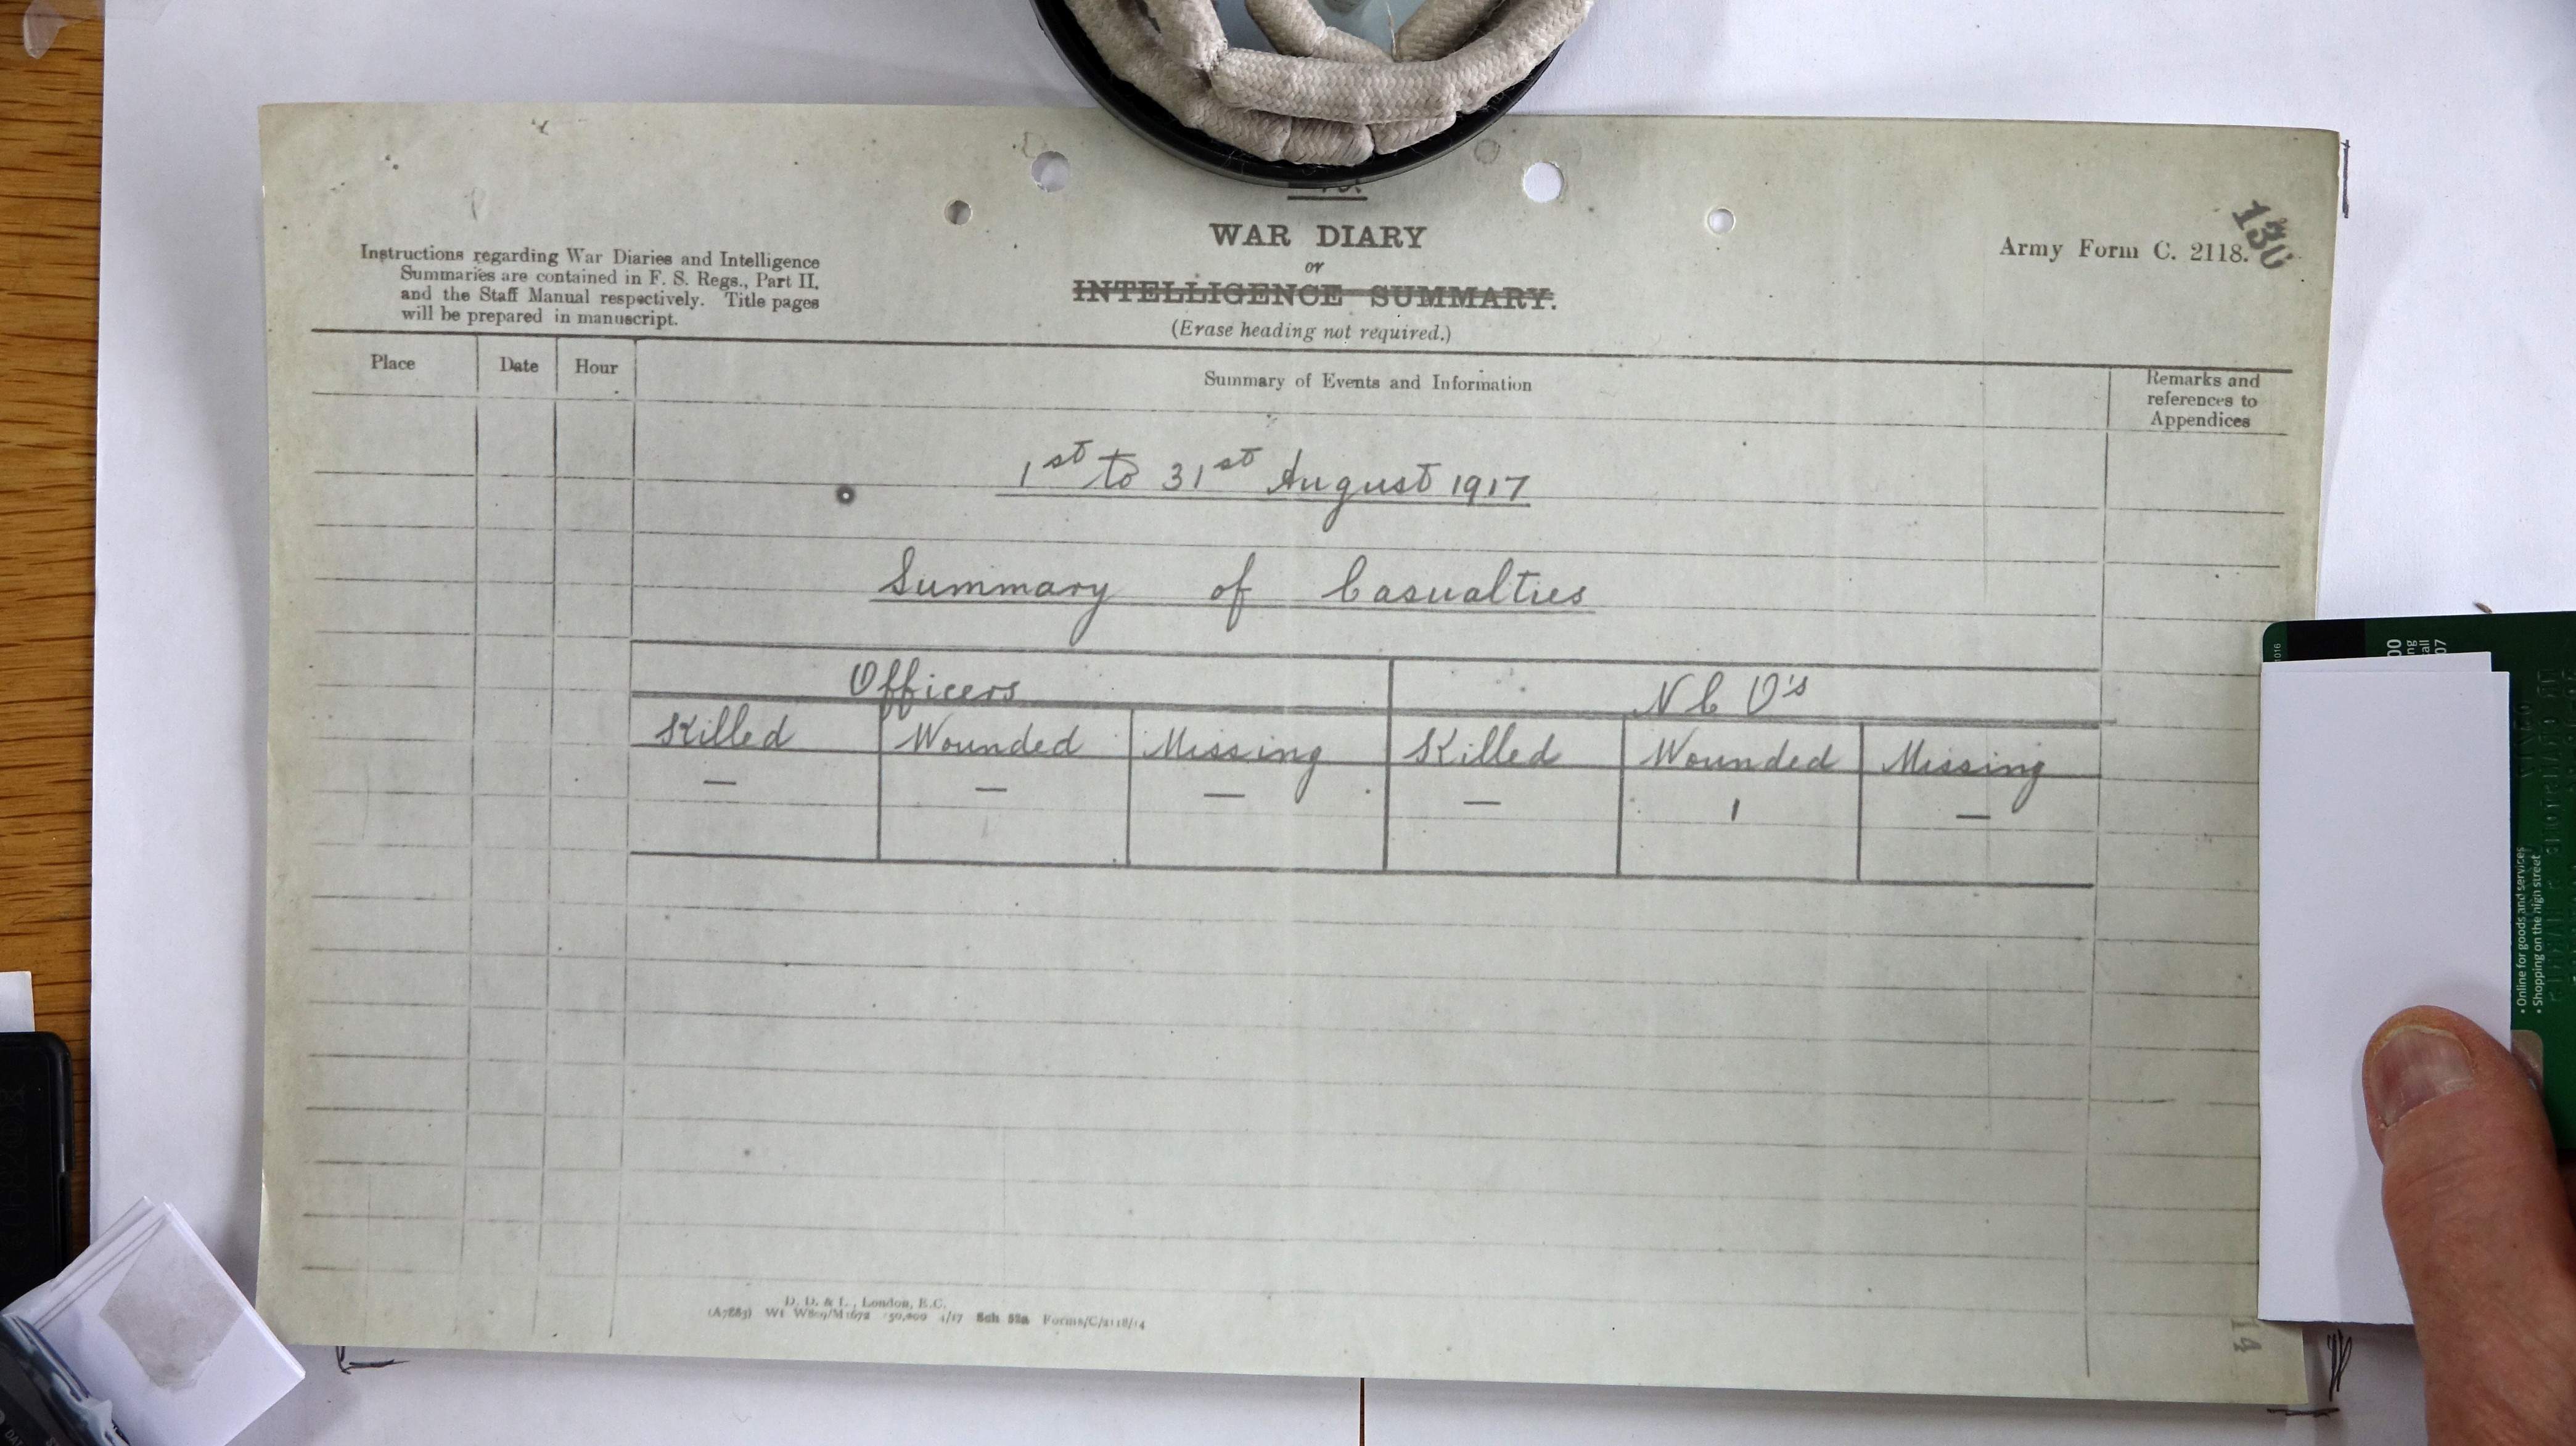 130
WAR DIARY
or
INTELLIGENCE SUMMARY.
(Erase heading not required.)
Army Form C. 2118.
Instructions regarding War Diaries and Intelligence
Summaries are contained in F. S. Regs., Part II,
and the Staff Manual respectively. Title pages
will be prepared in manuscript.
Place Date Hour Summary of Events and Information Remarks and
references to
Appendices
1st to 31st August 1917
Summary of Casualties
Officers N C O's
Killed Wounded Missing Killed Wounded Missing
— — — — 1 —
D. D. & L., London, E.C.
(A7883) Wt W809/M1672 350,000 4/17 Sch 52a Forms/C/2118/14
14
• Online for goods and services
• Shopping on the high street